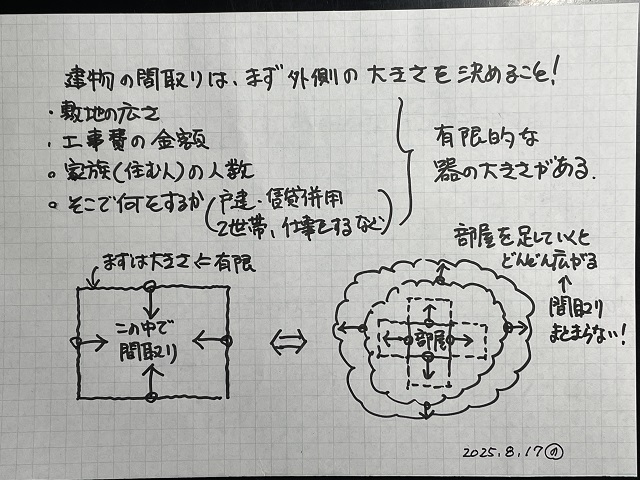 建物の間取りは、まず外側の大きさを決めること!
・敷地の広さ
・工事費の金額
・家族(住む人)の人数
・そこで何をするか(戸建・賃貸併用
2世帯、仕事をするなど)
有限的な
器の大きさがある.
まずは大きさ←有限
この中で
間取り
⇔
部屋を足していくと
どんどん広がる
↑
間取り
まとまらない!
部屋
2025.8.17 の